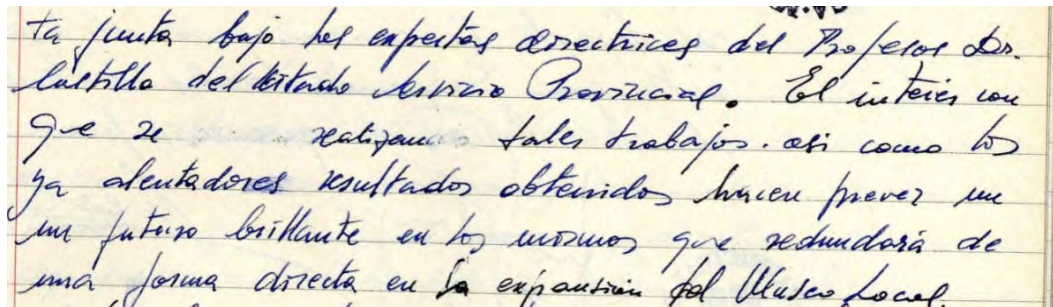 ta junta bajo las expertas directrices del Profesor Dr.
Castillo del citado Servicio Provincial. El interés con
que se realizan tales trabajos. asi como los
ya alentadores resultados obtenidos hacen prever un
un futuro brillante en los mismos que redundará de
una forma directa en la expansión del Museo Local,